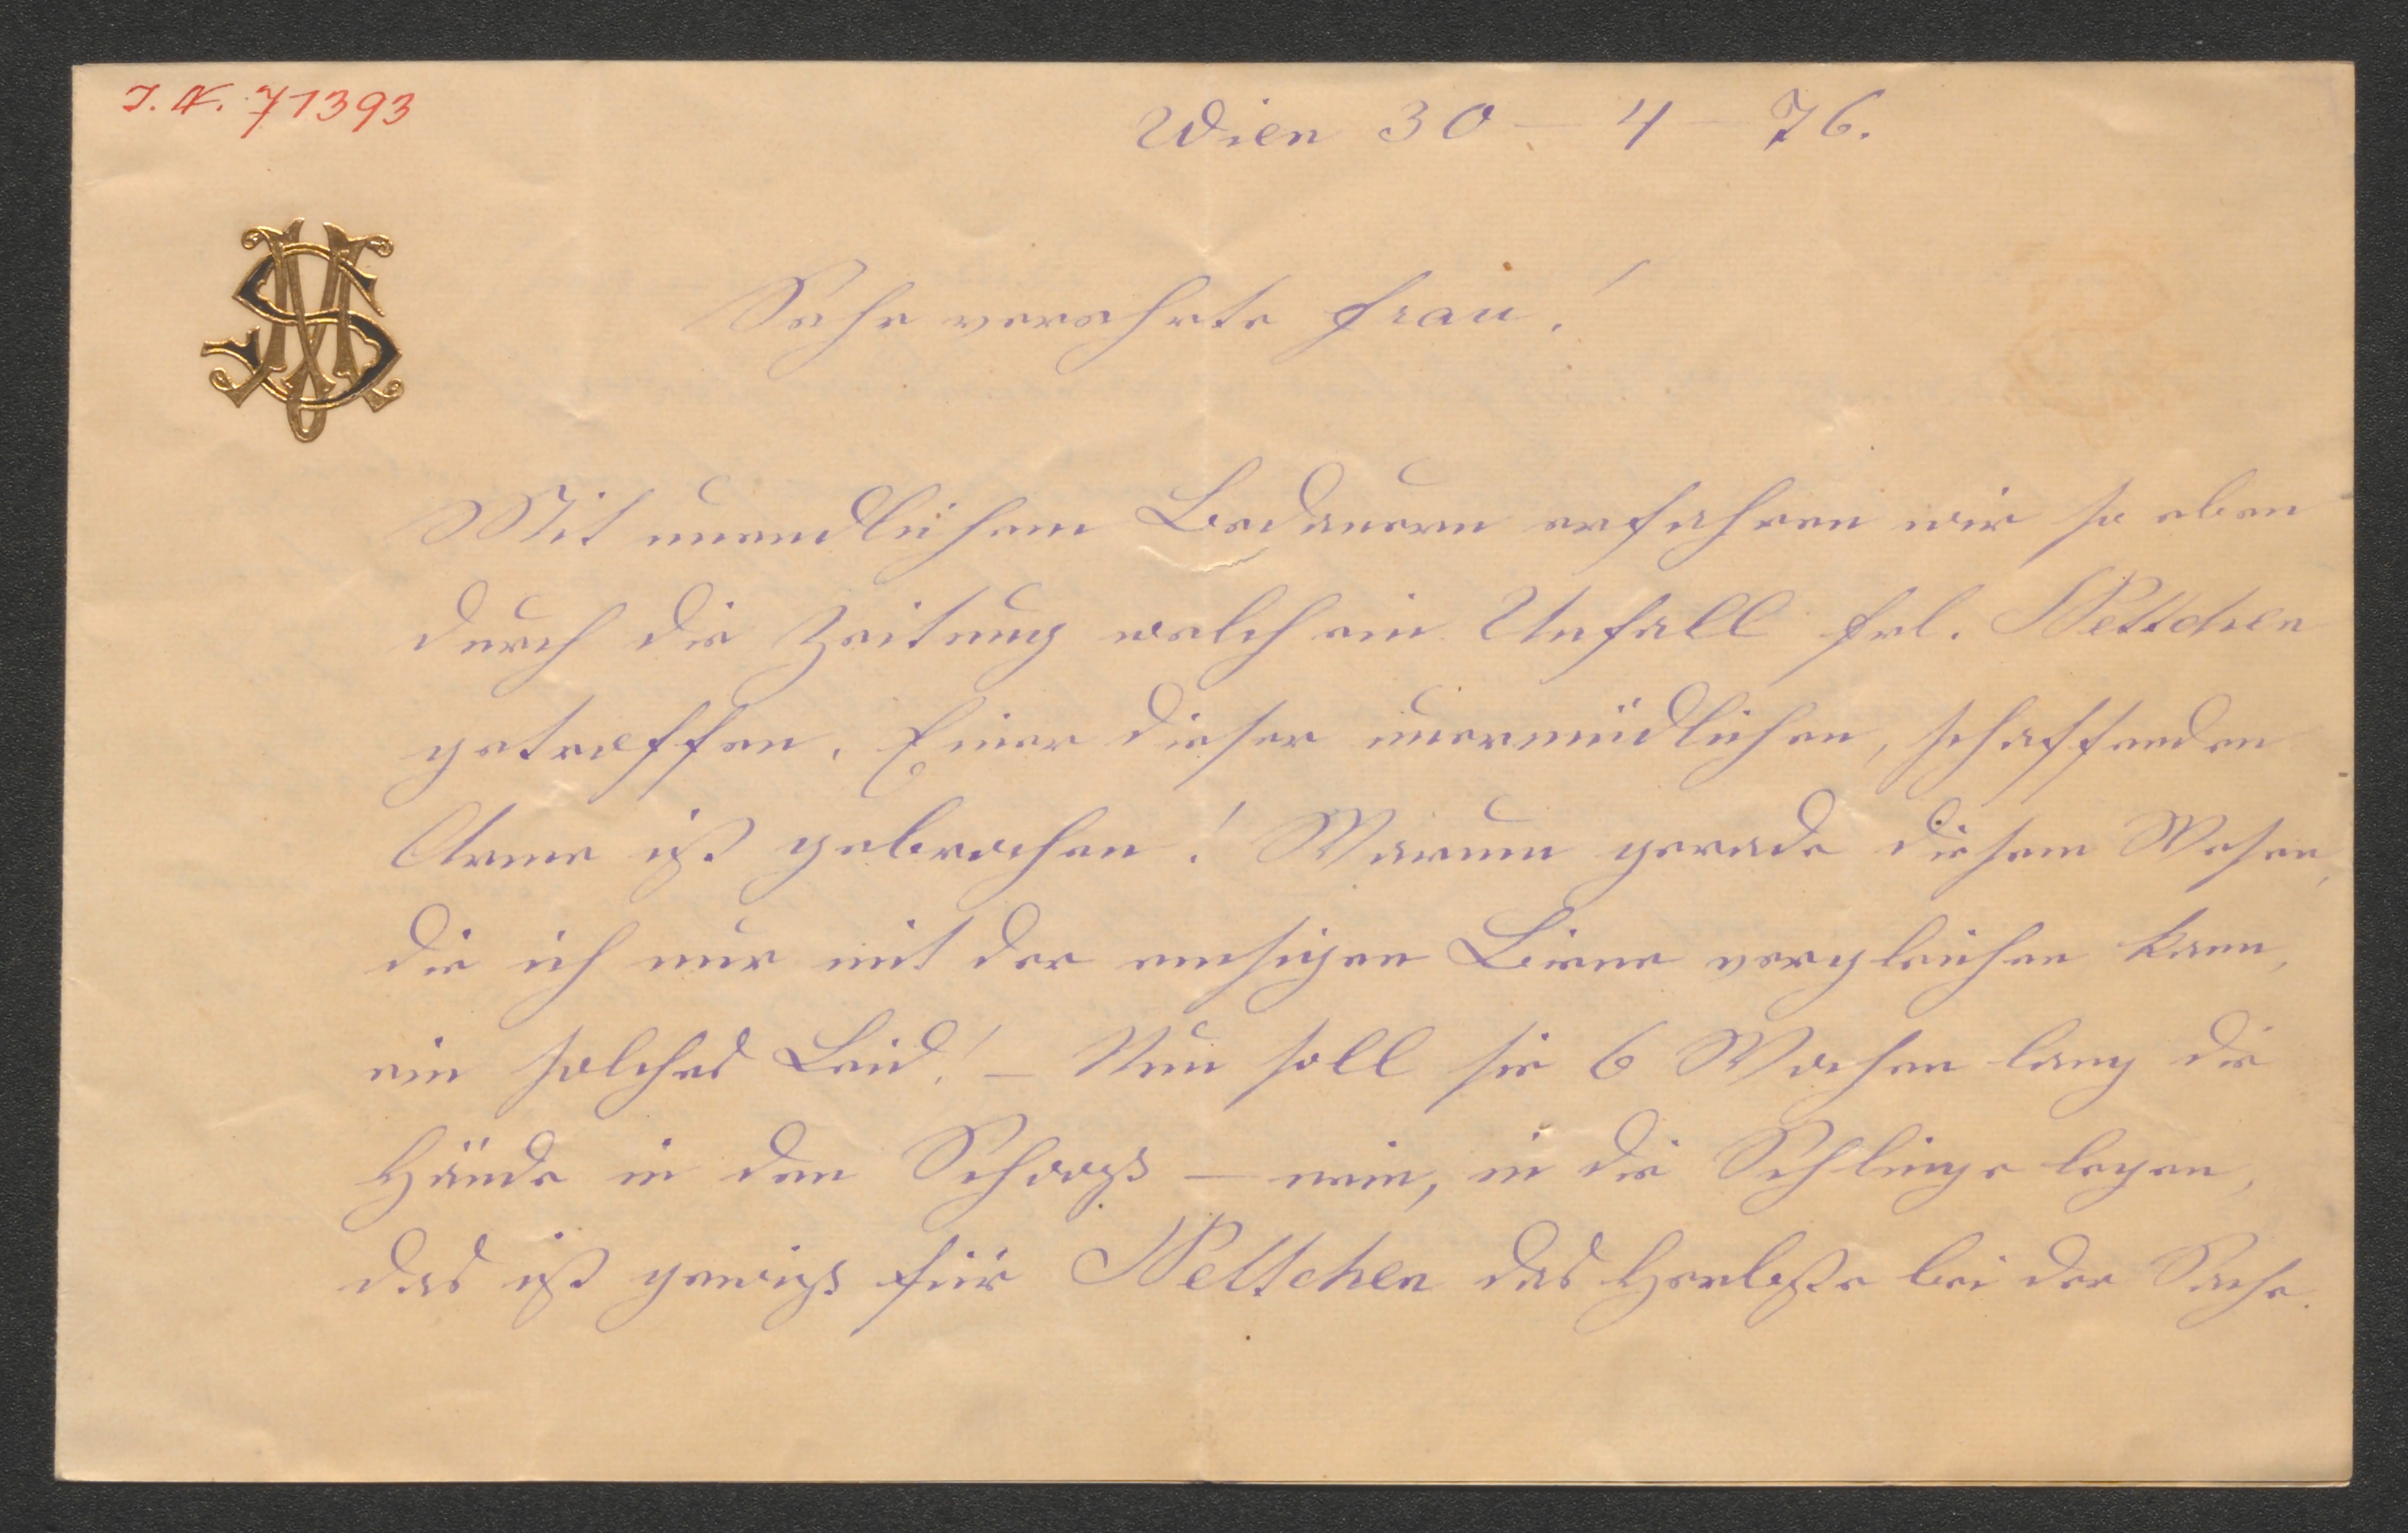 I. N. 71393
Wien 30 – 4 – 76.
MS
Sehr verehrte Frau!
Mit unendlichem Bedauern erfahren wir so eben
durch die Zeitung welch ein Unfall Frl. Nettchen
getroffen. Einer dieser unermüdlichen, schaffenden
Arme ist gebrochen! Warum gerade diesem Wesen,
die ich nur mit der emsigen Biene vergleichen kann,
ein solches Leid! – Nun soll sie 6 Wochen lang die
Hände in den Schooß – nein, in die Schlinge legen,
das ist gewiß für Nettchen das Herbste bei der Sache.